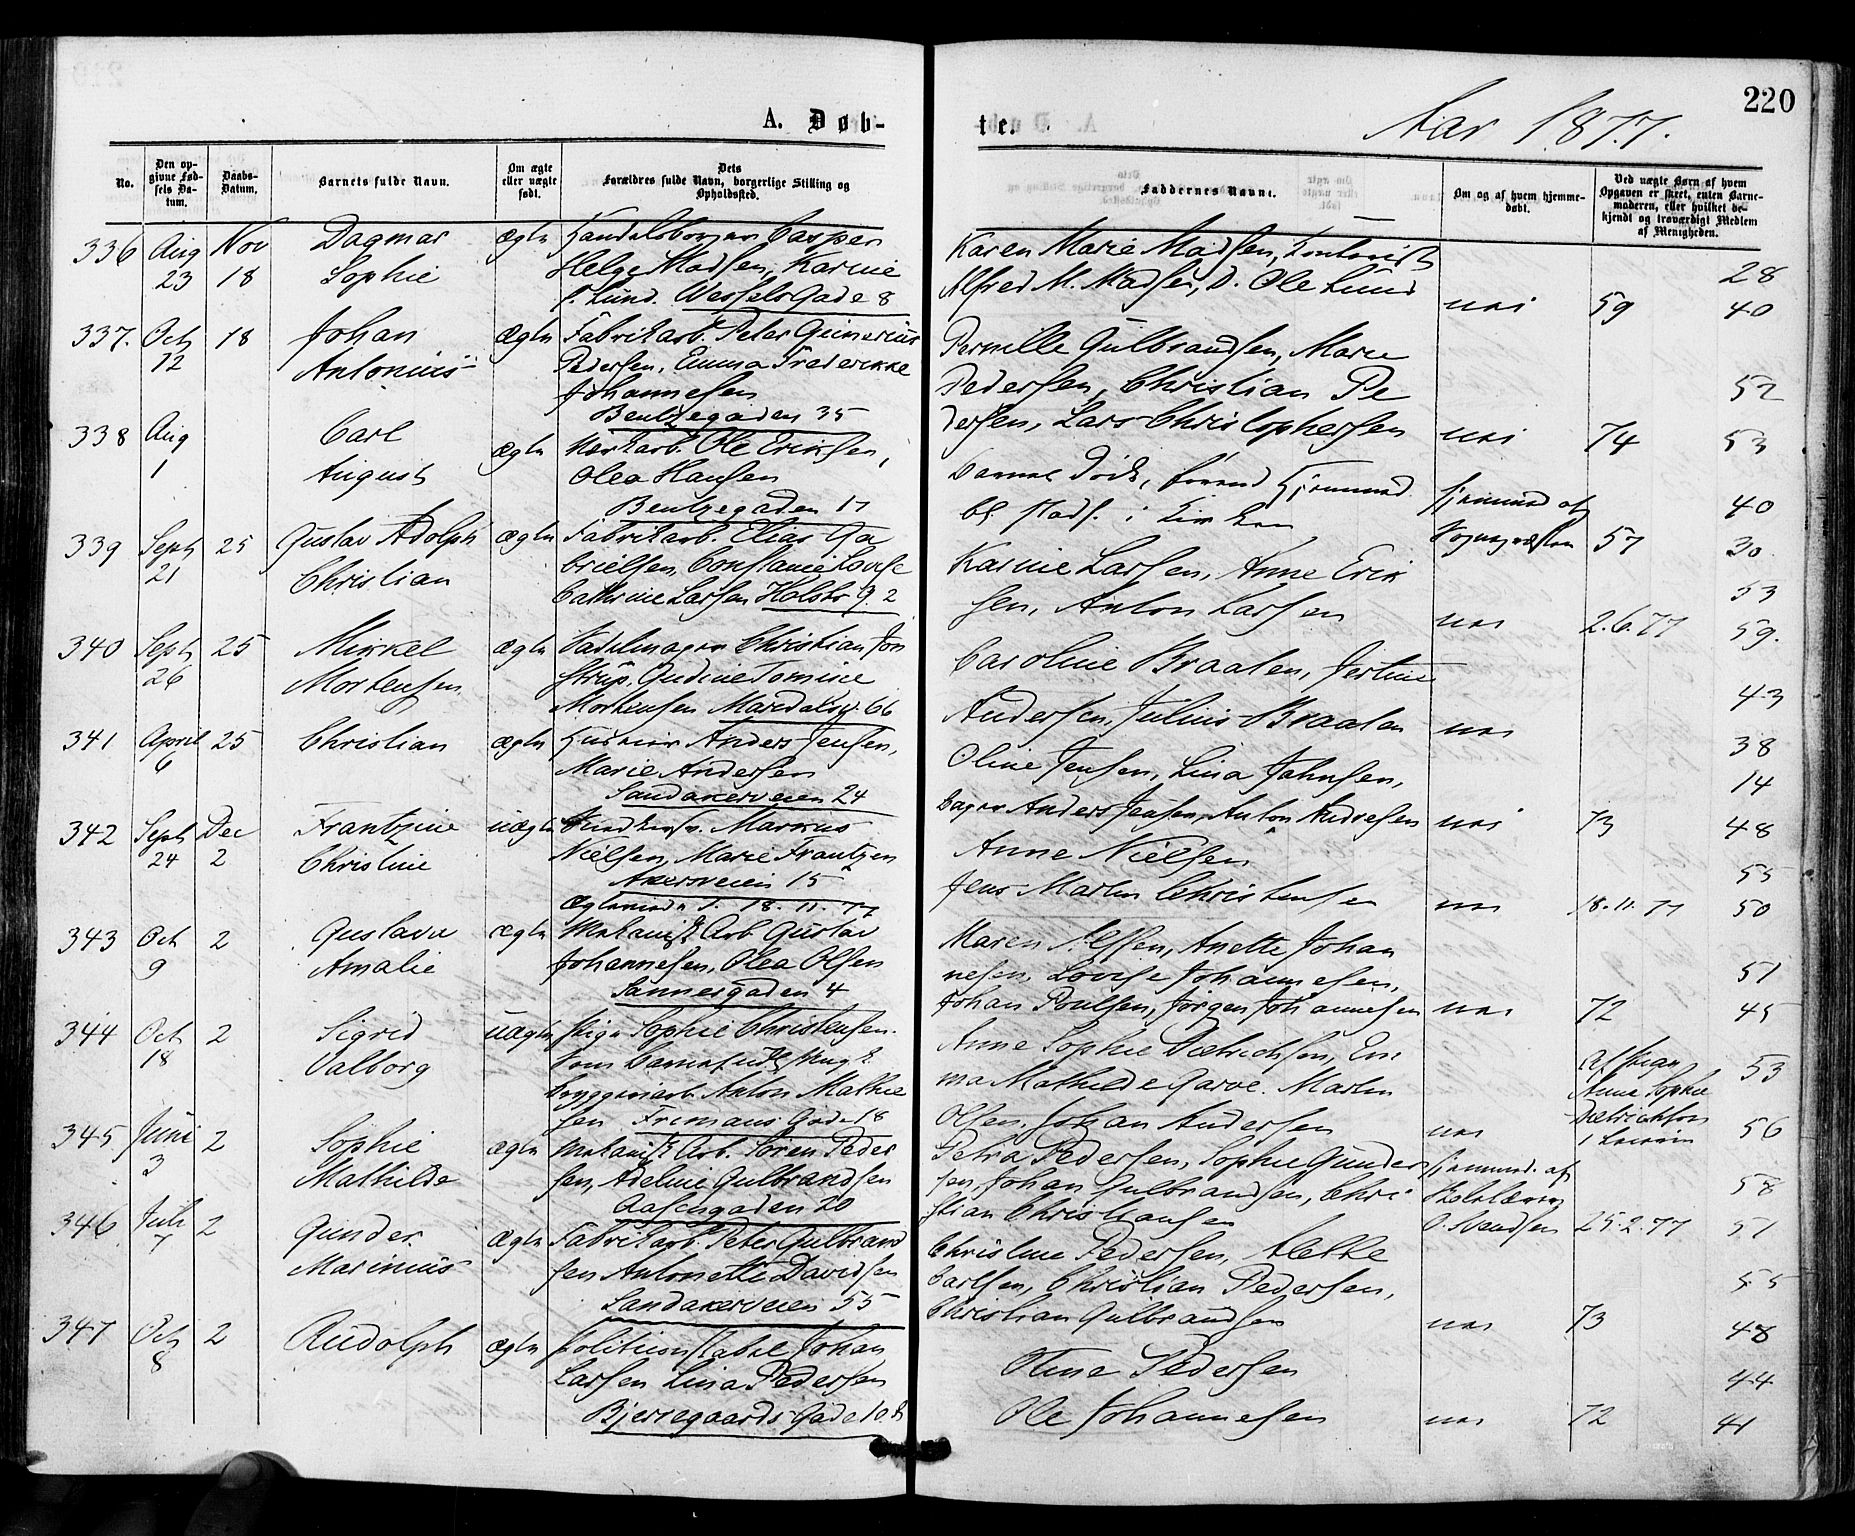 220
A. Døb-
te.
Aar 1877.
No.
Den opgivne Fødsels Datum.
Daabs-Datum.
Barnets fulde Navn.
Om ægte eller uægte født.
Dets Forældres fulde Navn, borgerlige Stilling og Opholdssted.
Faddernes Navne.
Om og af hvem hjemmedøbt.
Ved uægte Børn af hvem Opgaven er skeet, enten Barnemoderen, eller hvilket bekjendt og troværdigt Medlem af Menigheden.
336 Aug 23 Nov 18 Dagmar Sophie ægte
Casper
Helge Madsen, Karine
Lund. Wessels Gade 8
Karen Marie Madsen,
Alfred M. Madsen, D. Ole Lund
nei 59
28
40
337. Oct 12 18 Johan Antonius ægte
Fabrikarb. Peter Gunerius
Pedersen, Emma Frederikke
Johannesen
Bentzegaden 35
Pernille Gulbrandsen, Marie
Pedersen, Christian Pe
dersen, Lars Christophersen
nei 74
52
53
338 Aug 1 Carl August ægte
Ole Eriksen,
Olea Hansen
Bentzegaden 17
Barnet døde, førend
bl. stadf. i Kirken
af
57
40
30
339 Sept 21 25 Gustav Adolph Christian ægte
Fabrikarb. Elias Ga
brielsen, Constanse Lovise
Cathrine Larsen Holsts G. 2
Karine Larsen, Anne Erik
sen, Anton Larsen
nei 2.6.77
53
59.
340 Sept 26 25 Mikkel Mortensen ægte
Sadelmager Christian Jon
strup, Gudine Tomine
Mortensen Maridalsv. 66
Caroline Braaten,
Andersen, Julius Braaten
nei
43
38
341 April 6 25 Christian ægte
Anders Jensen,
Marie Andersen
Sandakerveien 24
Oline Jensen, Lina Johnsen,
Bager Anders Jensen, Anton Andresen
nei 73
14
48
342 Sept 24 Dec 2 Frantzine Christine uægte
Markus
Nielsen, Marie Frantzen
Akersveien 15
18.11.77
Anne Nielsen
Jens Martin Christensen
nei 18.11.77
55
50
343 Oct 9 2 Gustava Amalie ægte
Mekanisk Arb Gustav
Johannesen, Olea Olsen
Sannergaden 4
Maren Olsen, Anette Johan
nesen, Lovise Johannesen,
Johan Poulsen, Jørgen Johannesen
nei 72
51
45
344 Oct 18 2 Sigrid Valborg uægte
Pige Sophie Christensen.
Anton Mathie
sen Fremans Gade 18
Anne Sophie Dietrichsen, Em
ma Mathilde Garve. Martin
Olsen, Johan Andersen
nei
Af
Anne Sophie
Dietrichson
53
56
345 Juni 3 2 Sophie Mathilde ægte
Mekanisk Arb. Søren Peder
sen, Adeline Gulbrandsen
Aasengaden 20
Petra Pedersen, Sophie Gunder
sen, Johan Gulbrandsen, Chri
stian Christiansen
hjemmed. af
25.2.77
58
57
346 Juli 7 2 Gunder Marinius ægte
Fabrikarb. Peter Gulbrand
sen Antonette Davidsen
Sandakerveien 55
Christine Pedersen, Alette
Carlsen, Christian Pedersen,
Christian Gulbrandsen
nei 73
55
48
347 Oct 8 2 Rudolph ægte
Politiconstabel Johan
Larsen Lina Pedersen
Bjerregaards Gade 10
Oline Pedersen
Ole Johannesen
nei 72
44
41